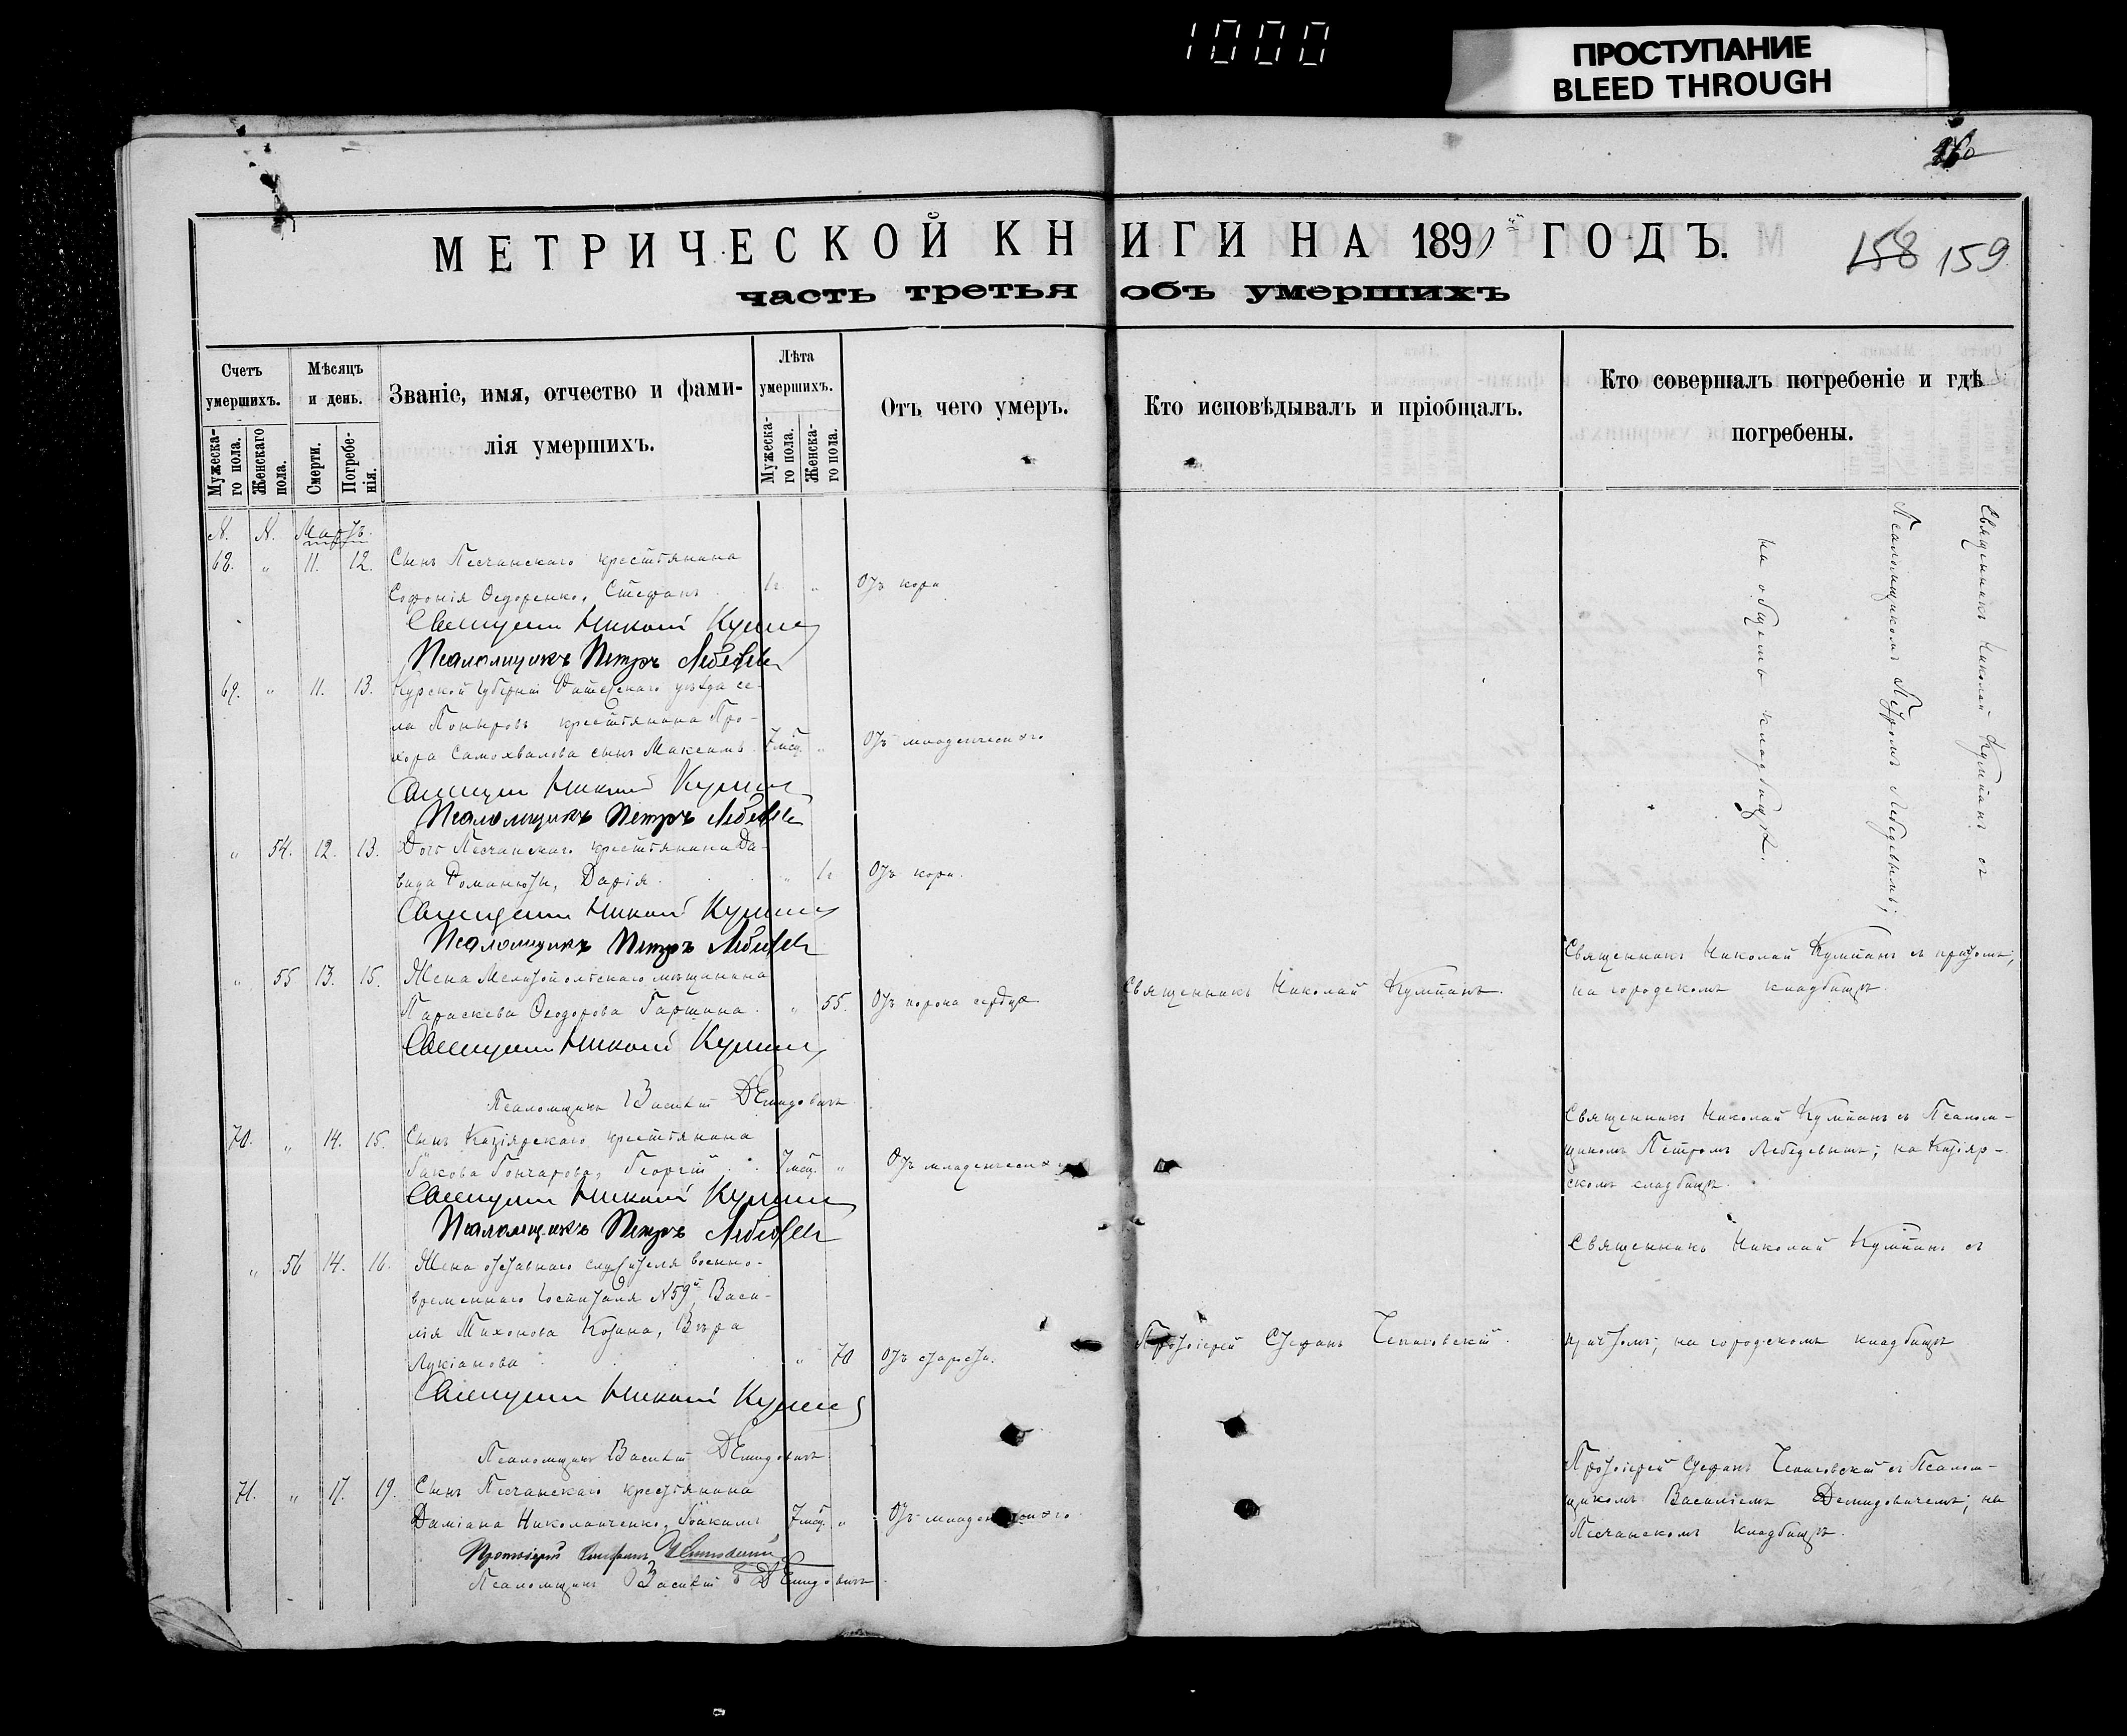 1000
ПРОСТУПАНИЕ
BLEED THROUGH
МЕТРИЧЕСКОЙ КНИГИ НА 1891й ГОДЪ.
158 159
часть третья объ умершихъ
Счетъ умершихъ.
Мужеска-го пола.
Женскаго пола.
Мѣсяцъ и день.
Смерти.
Погребе-нія.
Званіе, имя, отчество и фами-
лія умершихъ.
Лѣта умершихъ.
Мужеска-го пола.
Женска-го пола.
Отъ чего умеръ.
Кто исповѣдывалъ и пріобщалъ.
Кто совершалъ погребеніе и гдѣ
погребены.
N. N. Мартъ.
68. " 11. 12. Сынъ Песчанскаго крестьянина
Софонія Ѳедоренко, Стефанъ 1г " Отъ кори
Священникъ Николай
Псаломщикъ Петръ Лебедевъ
69. " 11. 13. Курской губерніи Фатежскаго уѣзда се-
ла Поныровъ крестьянина Про-
хора Самохвалова сынъ Максимъ 7 мѣс. " Отъ младенческаго
Священникъ Николай
Псаломщикъ Петръ Лебедевъ
" 54. 12. 13. Дочь Песчанскаго крестьянина Да-
вида Романюты, Дарія. " 1г Отъ кори.
Священникъ Николай
Псаломщикъ Петръ Лебедевъ
Священникъ Николай съ
Псаломщикомъ Петромъ Лебедевымъ;
на общемъ кладбищѣ.
" 55 13. 15. Жена Мелитопольскаго мѣщанина
Параскева Ѳеодорова Гаршина. " 55. Отъ порока сердца Священникъ Николай
Священникъ Николай съ причтомъ;
на городскомъ кладбищѣ.
Священникъ Николай
Псаломщикъ Василій Демидовичъ
70. " 14. 15. Сынъ Козіярскаго крестьянина
Іакова Гончарова, Георгій 7 мѣс. " Отъ младенческаго
Священникъ Николай съ Псалом-
щикомъ Петромъ Лебедевымъ; на Козіяр-
скомъ кладбищѣ.
Священникъ Николай
Псаломщикъ Петръ Лебедевъ
" 56 14. 16. Жена отставнаго служителя военно-
временнаго госпиталя N59й Васи-
лія Тихонова Козина, Вѣра
Лукіанова " 70 Отъ старости. Протоіерей Стефанъ
Священникъ Николай съ
причтомъ; на городскомъ кладбищѣ
Священникъ Николай
Псаломщикъ Василій Демидовичъ
71. " 17. 19. Сынъ Песчанскаго крестьянина
Даміана Николайченко, Іоакимъ 7 мѣс. " Отъ младенческаго
Протоіерей Стефанъ съ Псалом-
щикомъ Василіемъ Демидовичемъ; на
Песчанскомъ кладбищѣ.
Протоіерей Стефанъ
Псаломщикъ Василій Демидовичъ